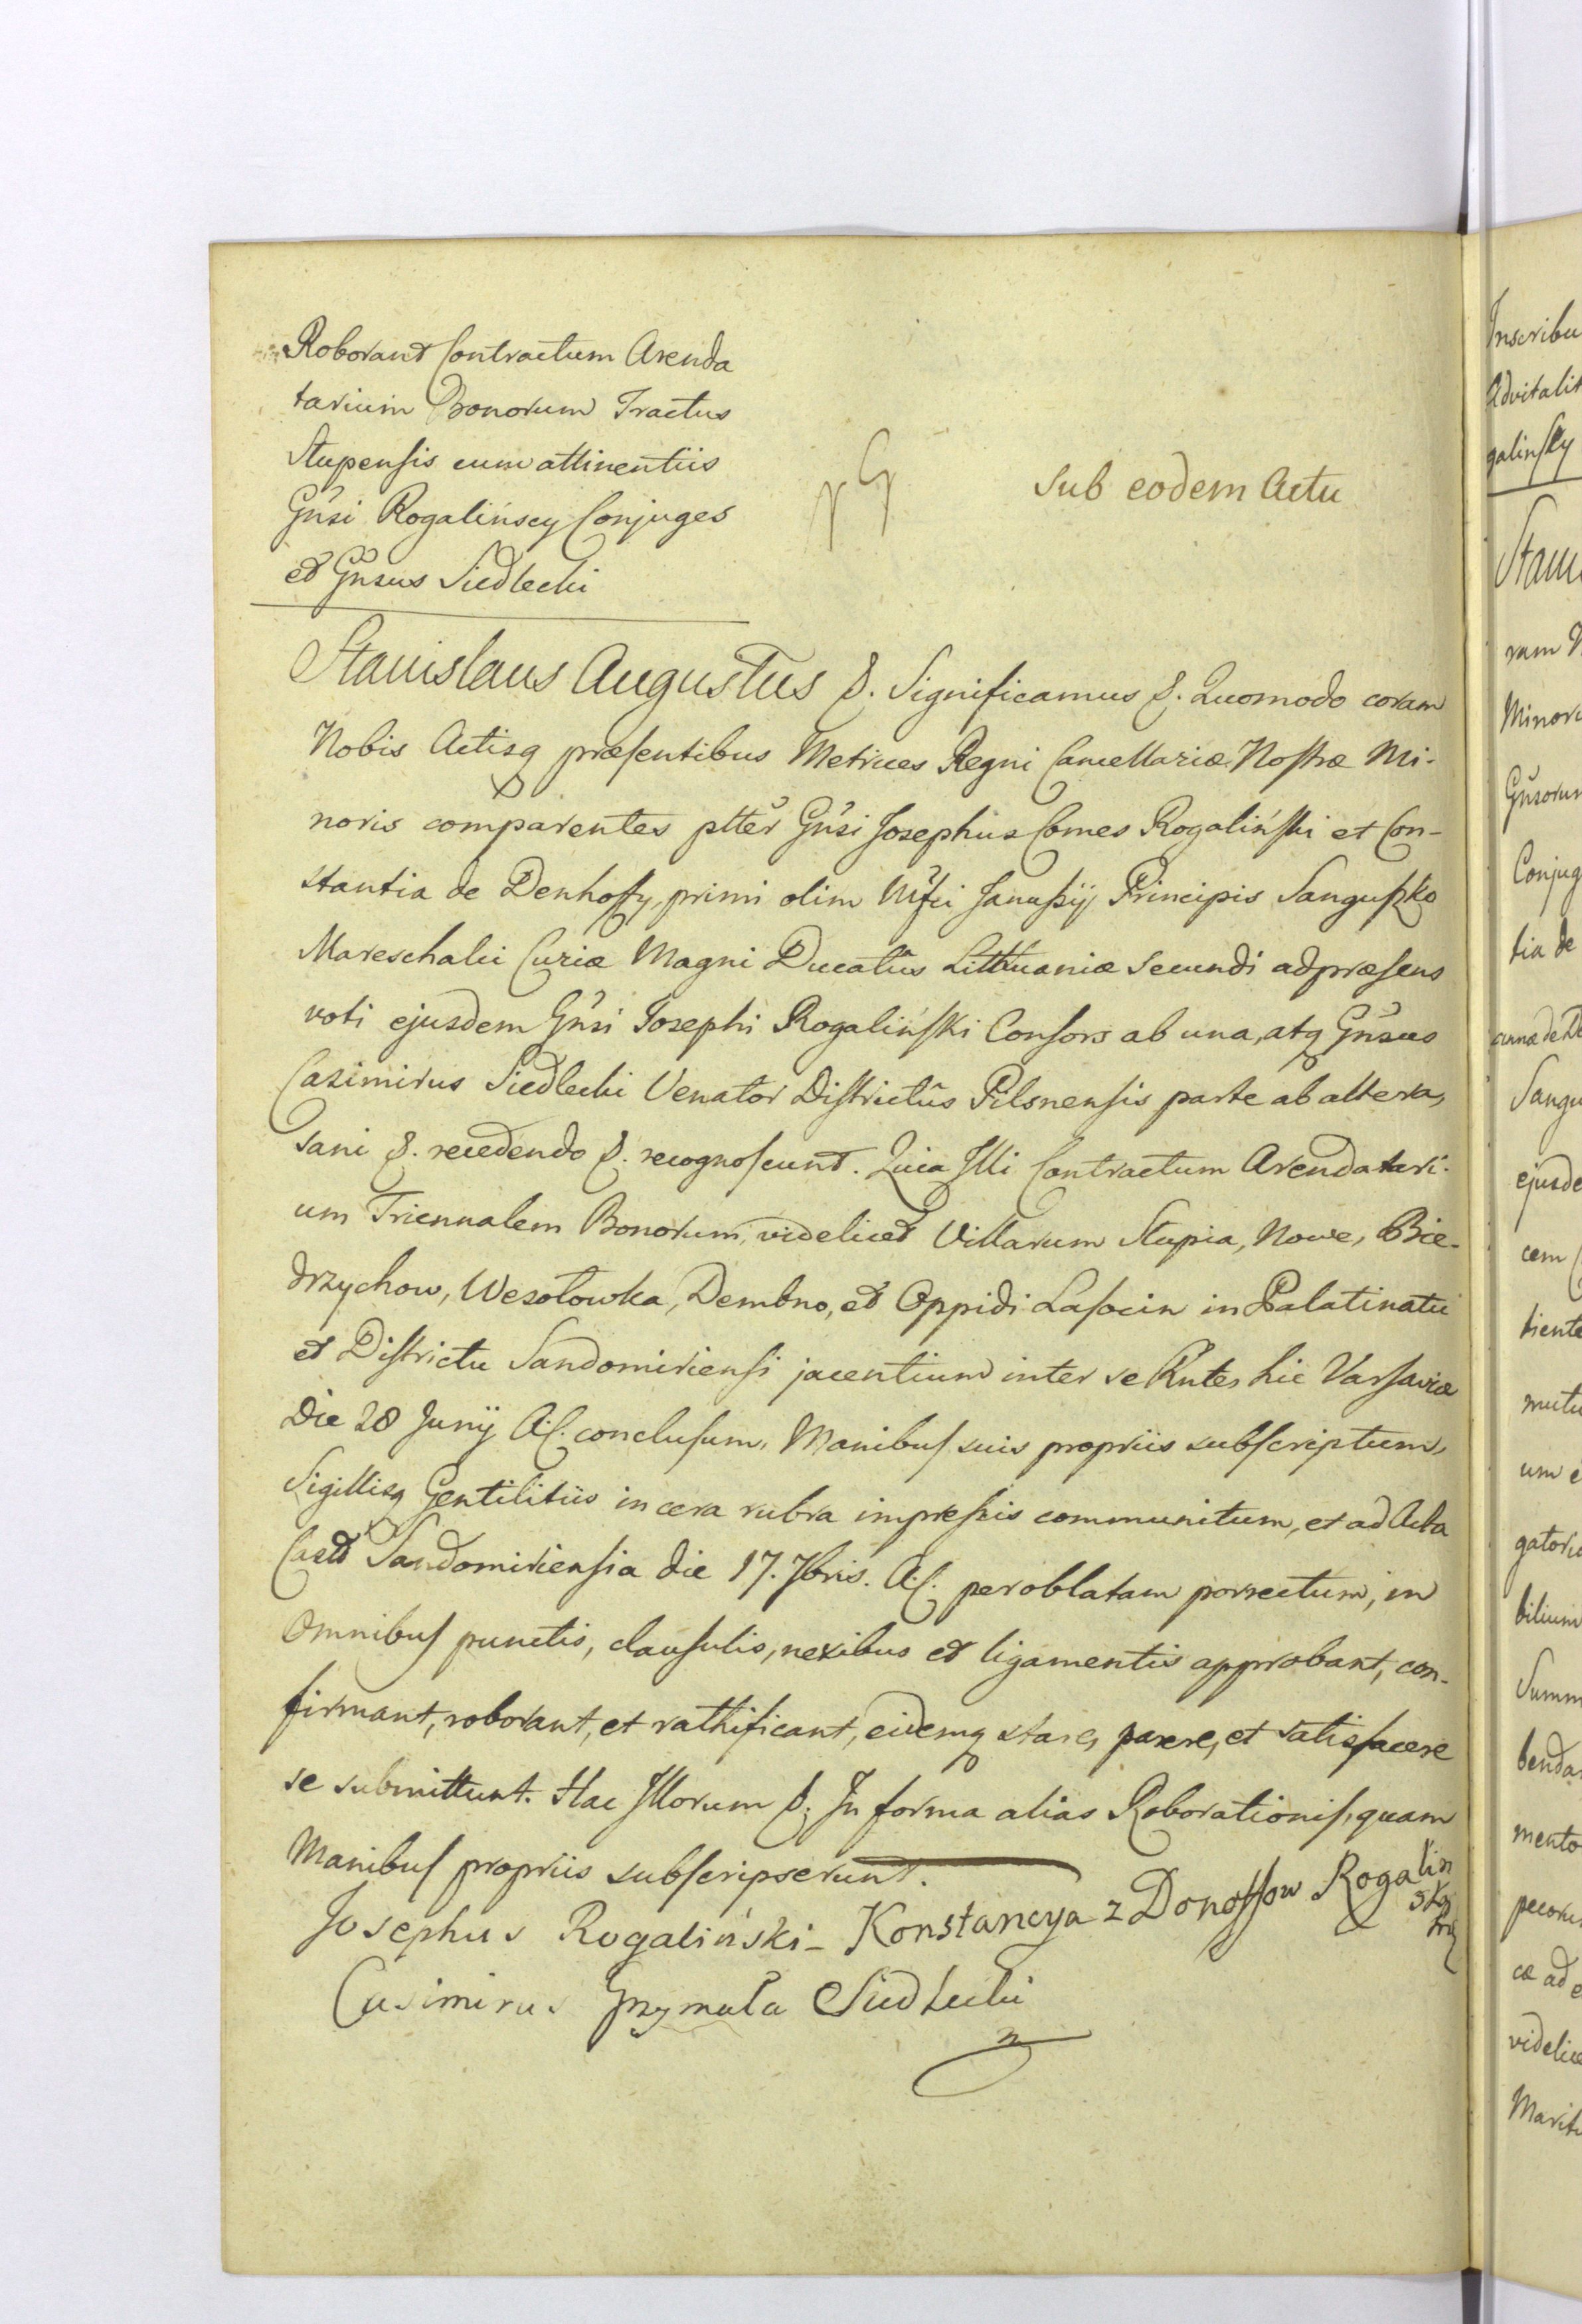 Roborant Contractum Arenda
tarium Bonorum Tractus
Stupensis cum attinentiis
Gn̄si Rogalińscy Conjuges
et Gn̄sus Siedlecki
Sub eodem Actu
Stanislaus Augustus &. Significamus &. Quomodo coram
Nobis Actisq præsentibus Metrices Regni Cancellariæ Nostræ Mi-
noris comparentes pltēr Gn̄si Josephus Comes Rogaliński et Con-
stantia de Denhoffy, primi olim Janussij Principis Sanguszko
Mareschalci Curiæ Magni Ducatûs Litthuaniæ secundi ad præsens
voti ejusdem Gn̄si Josephi Rogaliński Consors ab una, atq Gn̄sus
Casimirus Siedlecki Venator Districtûs Pilsnensis parte ab altera,
sani &. recedendo &. recognoscunt. Quia Illi Contractum Arendatari-
um Triennalem Bonorum, videlicet Villarum Stupia, Nowe, Bie-
drzychow, Wesołowka, Dembno, et Oppidi Lasocin in Palatinatu
et Districtu Sandomiriensi jacentium inter se Rn̄tes hic Varsaviæ
Die 28 Junij A:C. conclusum, Manibus suis propriis subscriptum,
Sigillisq Gentilitiis in cera rubra impressis communitum, et ad Acta
Cast Sandomiriensia die 17. 7bris. A:C. per oblatam porrectum, in
Omnibus punctis, clausulis, nexibus et ligamentis approbant, con-
firmant, roborant, et rathificant, eidemq stare, parere, et satisfacere
se submittunt. Hac Illorum &. In forma alias Roborationis, quam
Manibus propriis subscripserunt.
Josephus Rogaliński - Konstancya z Donoffow Rogalin
ska
Casimirus Grzymała Siedlecki
Inscribu
Advitalit
galinscy
Stani
ram N
Minori
Gn̄sorum
Conjug
tia de
annæ de De
Sangu
ejusde
cem
tiente
mutu
um e
gatoric
bilium
Summ
benda
mento
pecori
æ ad e
videlice
Marit